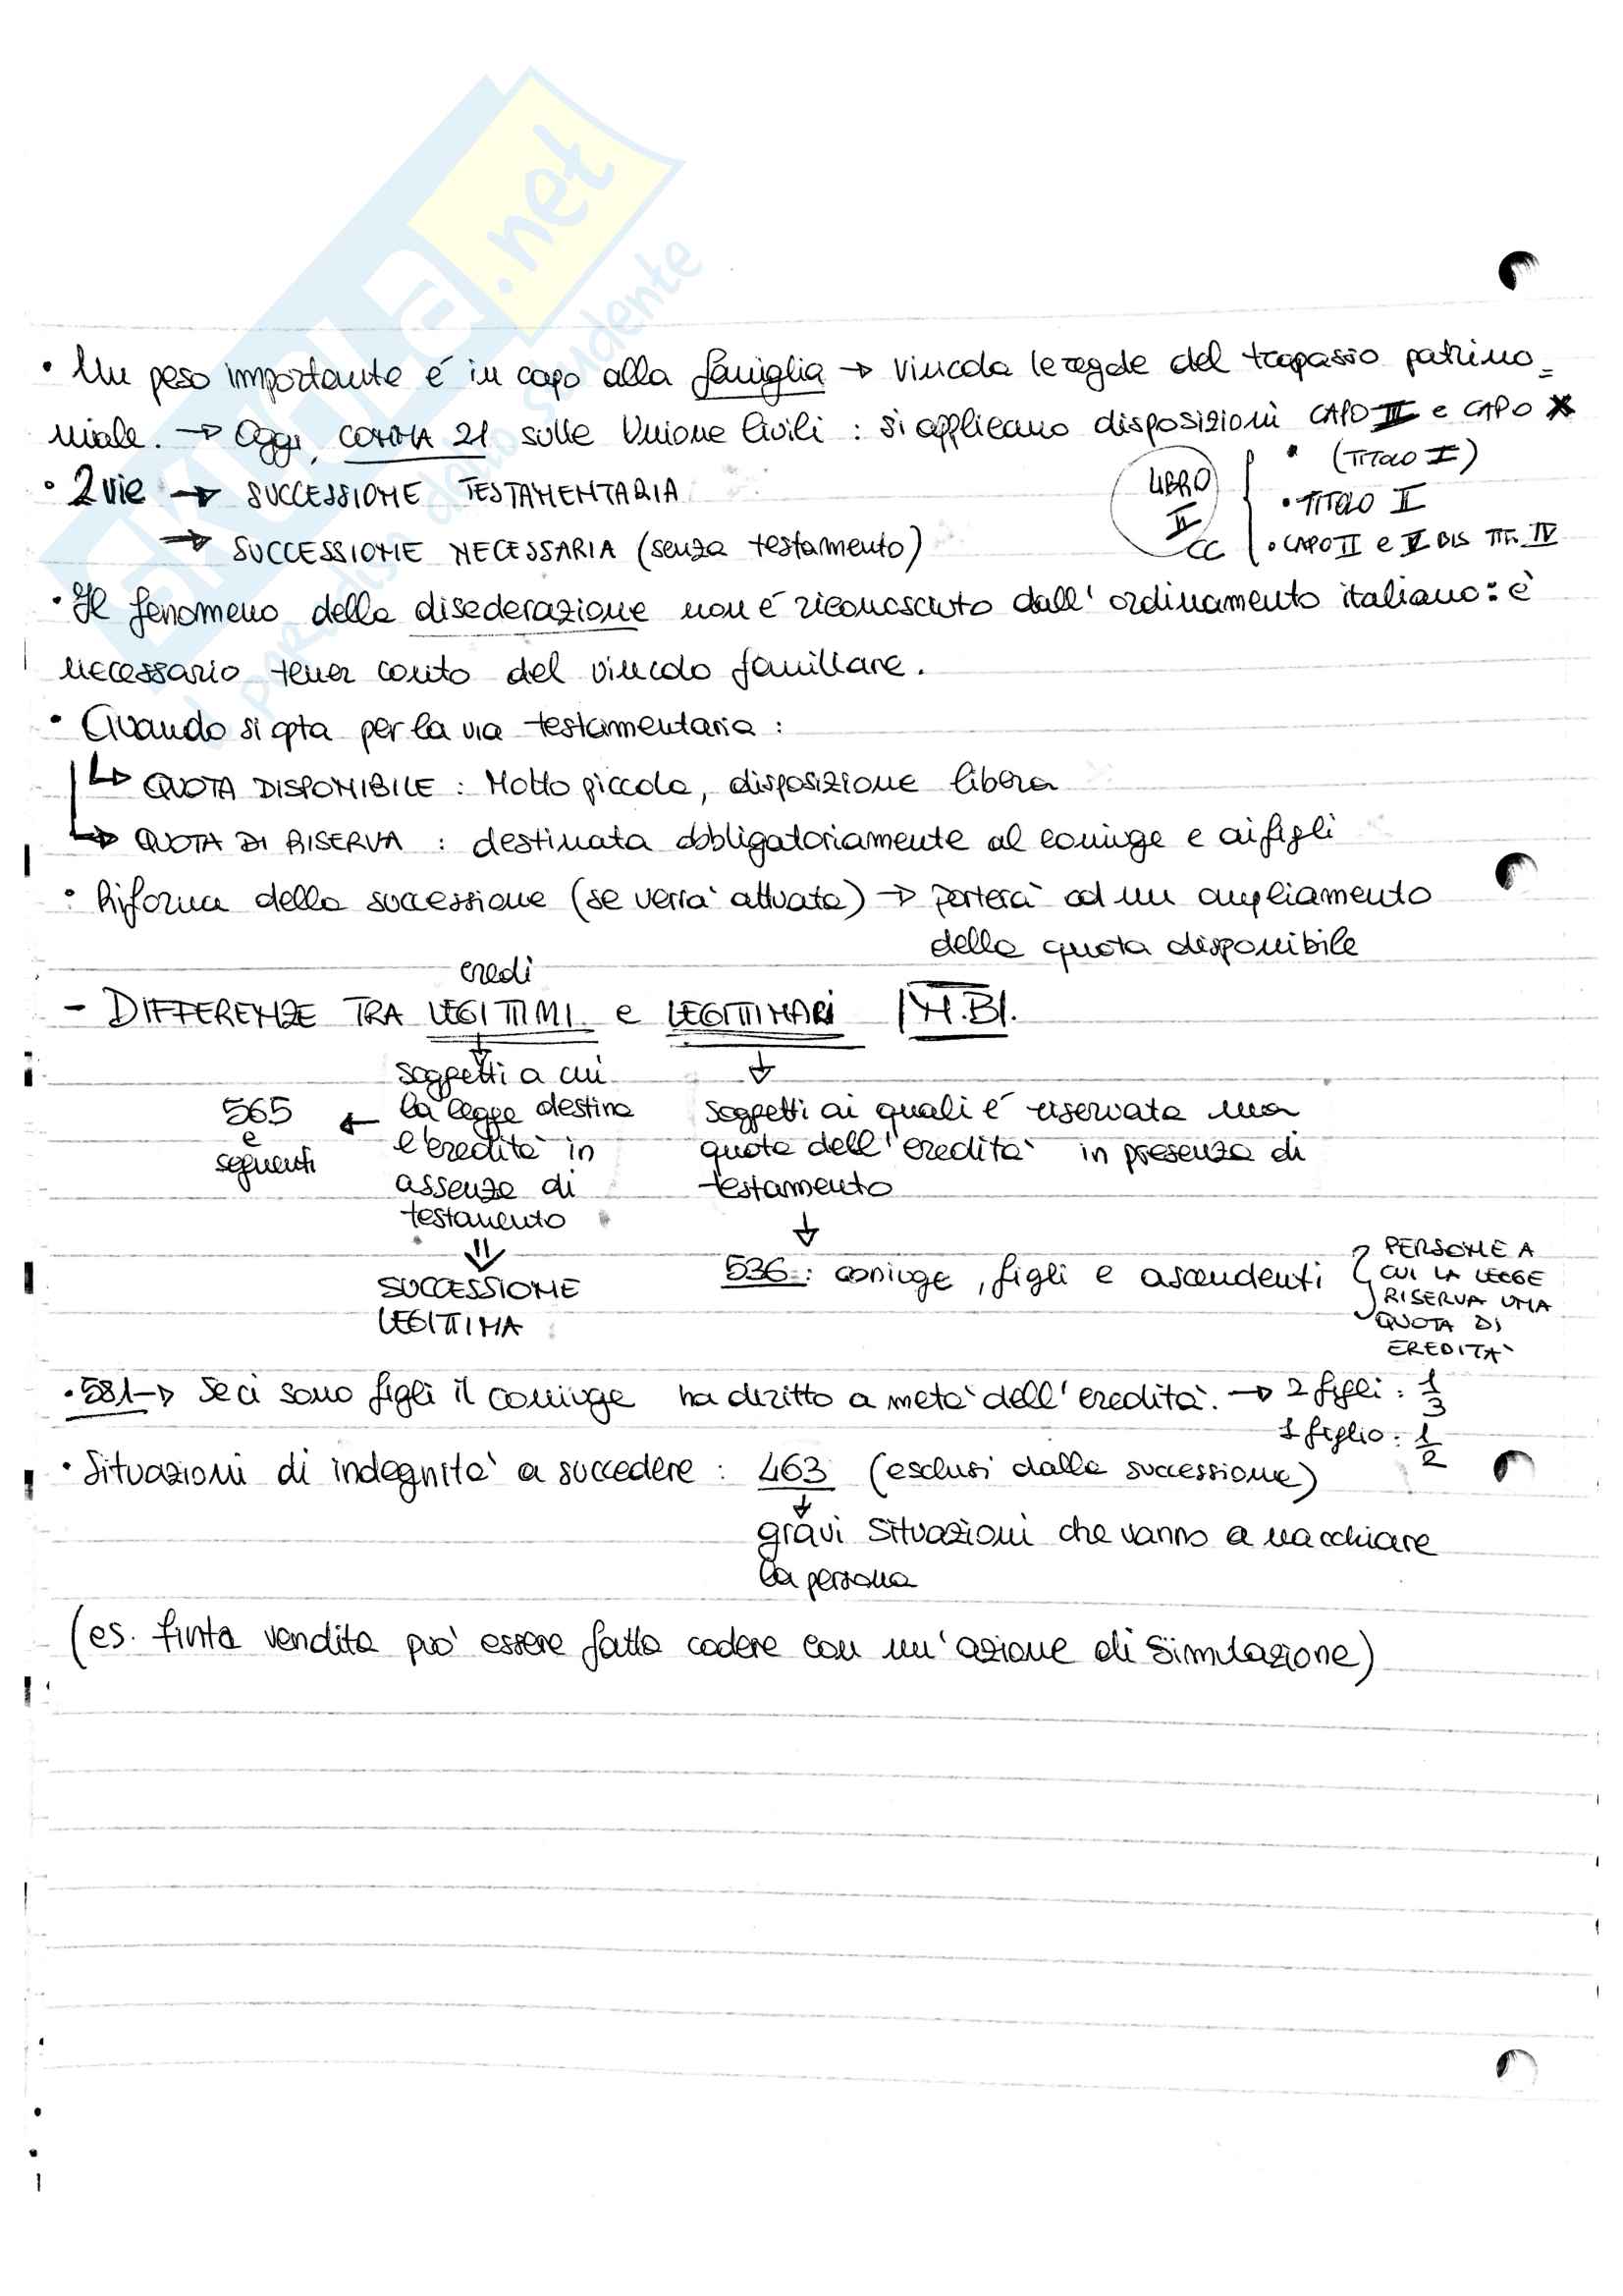 SKUOLA.net
il paradiso dello studente
• Un peso importante é in capo alla famiglia → vincola le regole del trapasso patrimo=
niale. → Oggi, COMMA 21 sulle Unione Civili : si applicano disposizioni CAPO III e CAPO X
(TITOLO I)
• 2 vie → SUCCESSIONE TESTAMENTARIA
LIBRO II CC
• TITOLO II
→ SUCCESSIONE NECESSARIA (senza testamento)
• CAPO II e V BIS TIT. IV
• Il fenomeno della disederazione non é riconosciuto dall' ordinamento italiano: è
necessario tener conto del vincolo familiare.
• Quando si opta per la via testamentaria :
↳ QUOTA DISPONIBILE : Molto piccola, disposizione libera
↳ QUOTA DI RISERVA : destinata obbligatoriamente al coniuge e ai figli
• Riforma della successione (se verrà attuata) → porterà ad un ampliamento
della quota disponibile
eredi
- DIFFERENZE TRA LEGITTIMI e LEGITTIMARI |N.B|.
soggetti a cui
la legge destina
l'eredità in
assenza di
testamento
565
e
seguenti
⇓
SUCCESSIONE
LEGITTIMA
soggetti ai quali é riservata una
quota dell'eredità in presenza di
testamento
↓
536 : coniuge, figli e ascendenti
PERSONE A
CUI LA LEGGE
RISERVA UNA
QUOTA DI
EREDITA'
• 581 → Se ci sono figli il coniuge ha diritto a metà dell'eredità. → 2 figli : 1/3
1 figlio : 1/2
• Situazioni di indegnità a succedere : 463 (esclusi dalla successione)
↓
gravi situazioni che vanno a macchiare
la persona
(es. finta vendita può essere fatta cadere con un'azione di simulazione)